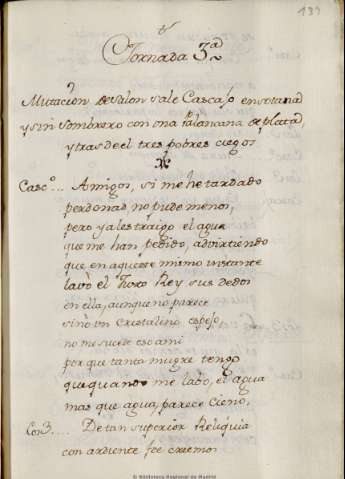 139
Jornada 3ª
Mutacion de salon sale Cascajo en sotana
y sin sombrero con una palancana de plata
y tras de el tres pobres ciegos
Casco... Amigos, si me he tardado
perdonad, no pude menos,
pero ya les traigo el agua
que me han pedido, advirtiendo
que en aqueste mismo instante
lavò el Rey sus dedos
en ella, aunque no parece
sino un cristalino espejo,
no me sucede eso ami
por que tanta mugre tengo
que quando me labo, el agua
mas que agua, parece cieno,
De tan superior Reliquia
con ardiente fee creemos
© Biblioteca Nacional de España